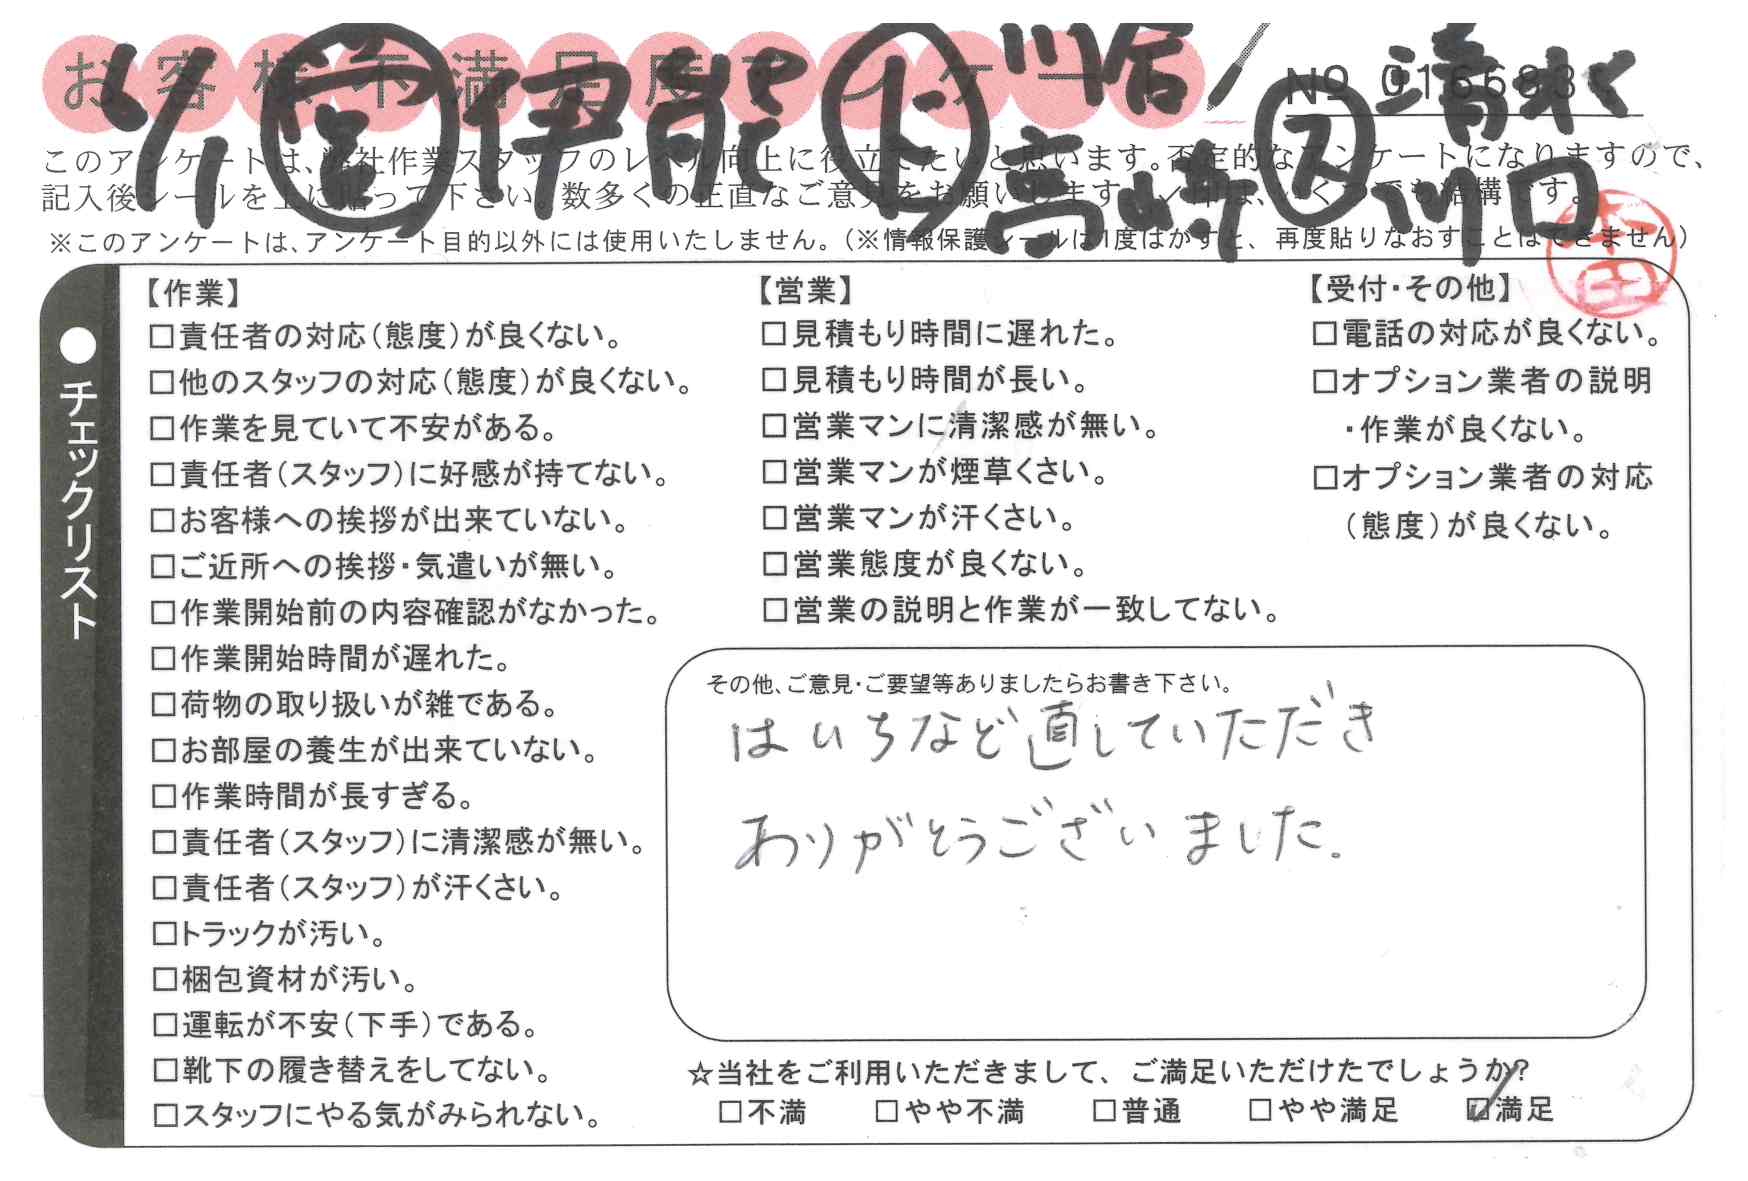 お客様不満足度アンケート
6/1 営 伊能 ト 川居/高崎 ス 清水/川口
No 016683
このアンケートは、弊社作業スタッフのレベル向上に役立てたいと思います。否定的なアンケートになりますので、
記入後シールを上に貼って下さい。数多くの正直なご意見をお願いします。✓印は、いくつでも結構です。
※このアンケートは、アンケート目的以外には使用いたしません。(※情報保護シールは1度はがすと、再度貼りなおすことはできません)
本田
●チェックリスト
【作業】
□責任者の対応(態度)が良くない。
□他のスタッフの対応(態度)が良くない。
□作業を見ていて不安がある。
□責任者(スタッフ)に好感が持てない。
□お客様への挨拶が出来ていない。
□ご近所への挨拶・気遣いが無い。
□作業開始前の内容確認がなかった。
□作業開始時間が遅れた。
□荷物の取り扱いが雑である。
□お部屋の養生が出来ていない。
□作業時間が長すぎる。
□責任者(スタッフ)に清潔感が無い。
□責任者(スタッフ)が汗くさい。
□トラックが汚い。
□梱包資材が汚い。
□運転が不安(下手)である。
□靴下の履き替えをしてない。
□スタッフにやる気がみられない。
【営業】
□見積もり時間に遅れた。
□見積もり時間が長い。
□営業マンに清潔感が無い。
□営業マンが煙草くさい。
□営業マンが汗くさい。
□営業態度が良くない。
□営業の説明と作業が一致してない。
【受付・その他】
□電話の対応が良くない。
□オプション業者の説明
・作業が良くない。
□オプション業者の対応
(態度)が良くない。
その他、ご意見・ご要望等ありましたらお書き下さい。
はいちなど直していただき
ありがとうございました。
☆当社をご利用いただきまして、ご満足いただけたでしょうか?
□不満 □やや不満 □普通 □やや満足 ☑満足